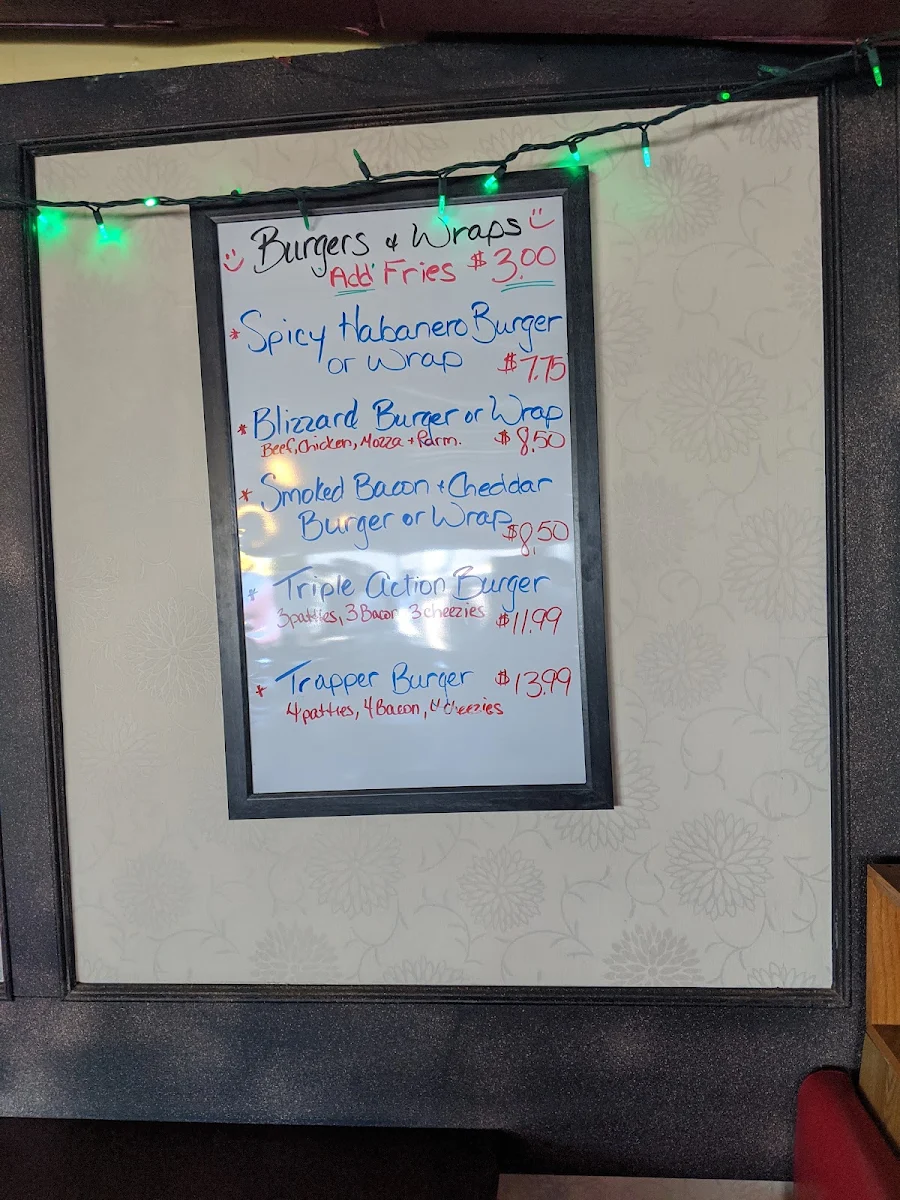 Burgers & Wraps
Add Fries $3.00
* Spicy Habanero Burger
or Wrap $7.75
* Blizzard Burger or Wrap
Beef, Chicken, Mozza + Parm. $8.50
* Smoked Bacon + Cheddar
Burger or Wrap $8.50
* Triple Action Burger
3 patties, 3 Bacon, 3 cheezies $11.99
* Trapper Burger $13.99
4 patties, 4 Bacon, 4 cheezies